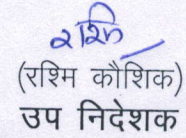 रश्मि
(रश्मि कौशिक)
उप निदेशक